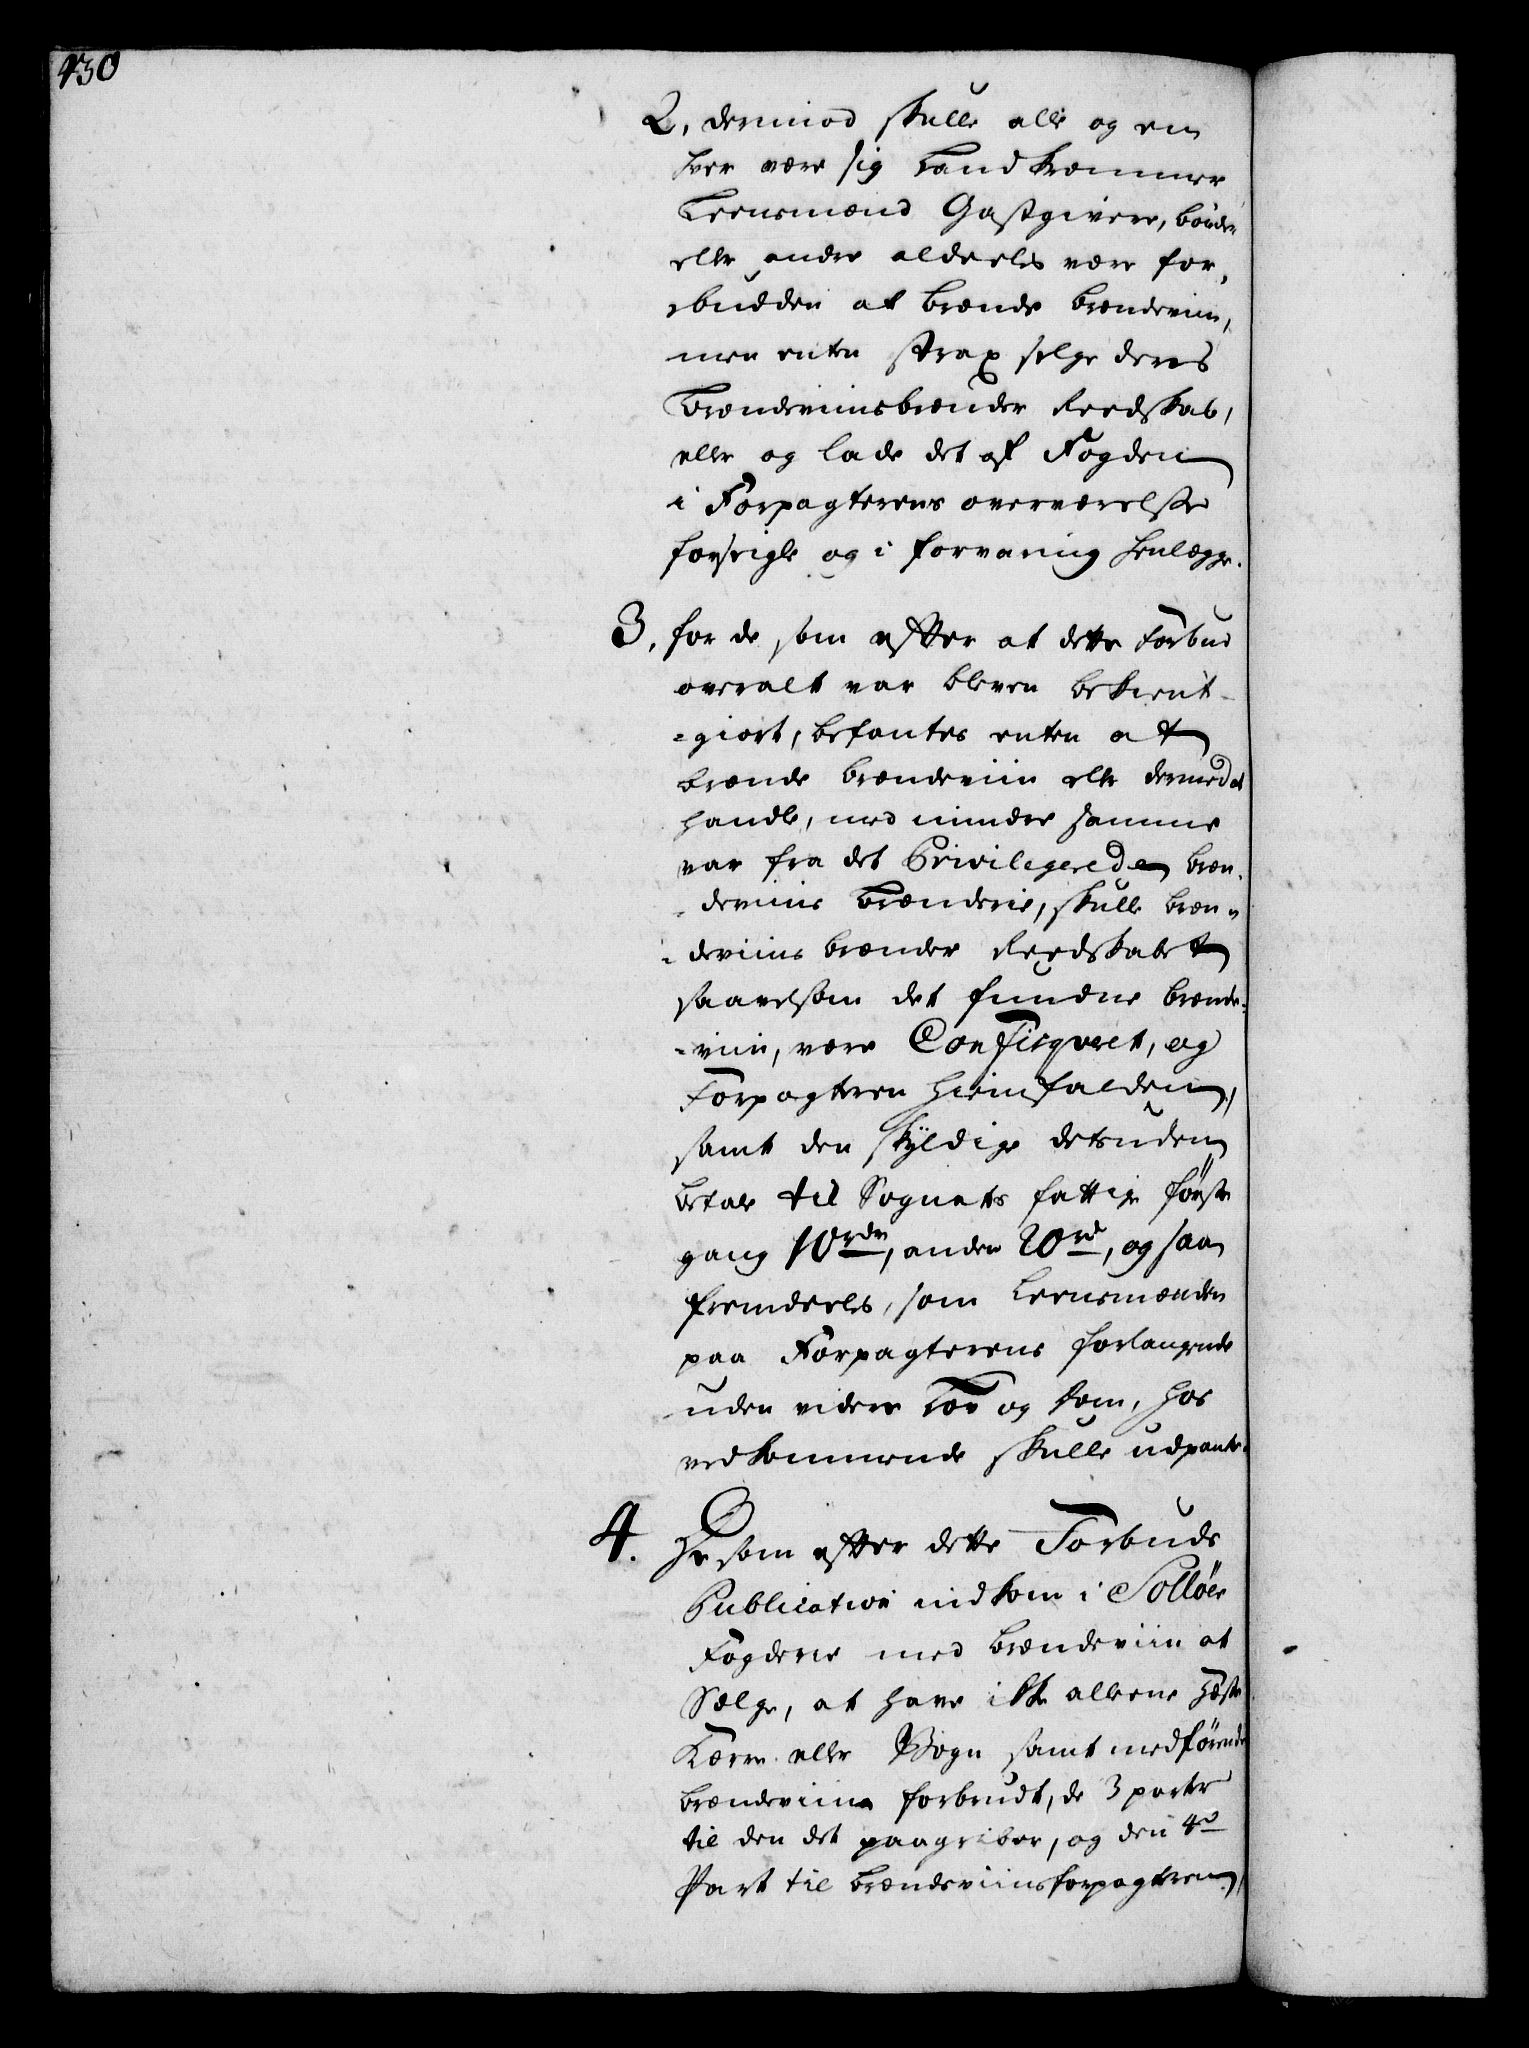 430
2, dermod skulle alle og en
hver være sig Landkræmmer
Leensmænd Gastgivere, bönder
eller andre aldeeles være for,
budden at brænde brændeviin,
men enten strax selge deres
Brændeviinsbrænder Reedskab,
eller og lade det af Fogden
i Forpagterens overværelse
forseigle og i forvaring henlægge.
3, for de som efter at dette Forbud
overalt var bleven bekient-
=giort, befantes enten at
brænde brændeviin eller dermed at
handle, med mindre samme
var fra det Privilegerede bræn-
deviins Brænderie, skulle bræn=
=deviins brænder Reedskabet
saavelsom det fundne brænde=
=viin, være Confisqveret, og
Forpagteren hiemfalden,
samt den skyldige desuden
betale til Sognets fattige förste
gang 10 rdr, anden 20 rd, og saa
fremdeeles, som Leensmanden
paa Forpagterens forlangende
uden videre Lov og Dom, hos
vedkommende skulle udpante.
4. De som efter dette Forbuds
Publication indkom i Solløer
Fogderie med brændeviin at
Sælge, at have ikke alleene Heste
Kærre eller Vogn samt medförende
brændeviin forbrudt, de 3 parte
til den det paagriber, og den 4de
Part til brændeviinsforpagteren,